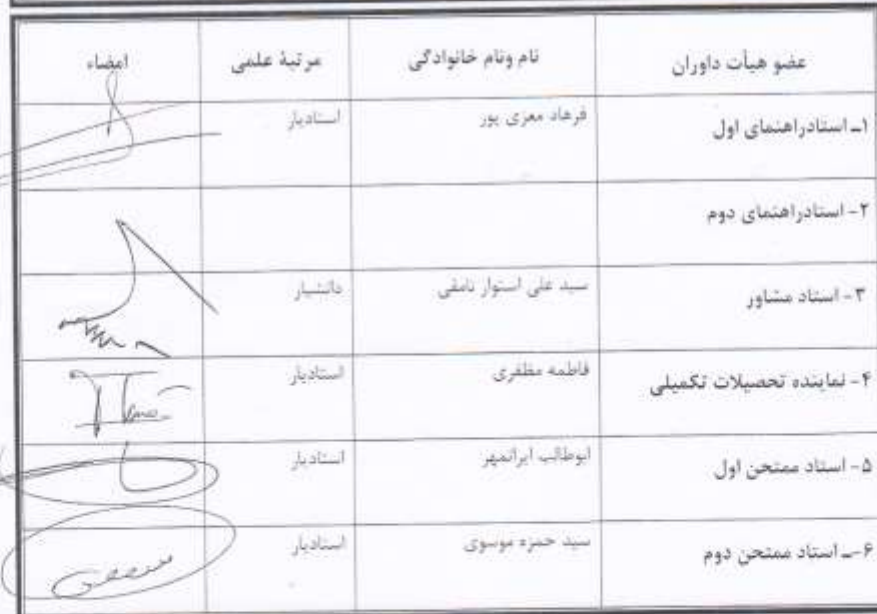 عضو هیأت داوران نام ونام خانوادگی مرتبۀ علمی امضاء
۱ـ استادراهنمای اول فرهاد معزی پور استادیار
۲- استادراهنمای دوم
۳- استاد مشاور سید علی استوار نامقی دانشیار
۴- نماینده تحصیلات تکمیلی فاطمه مظفری استادیار
۵- استاد ممتحن اول ابوطالب ایرانمهر استادیار
۶ـ استاد ممتحن دوم سید حمزه موسوی استادیار